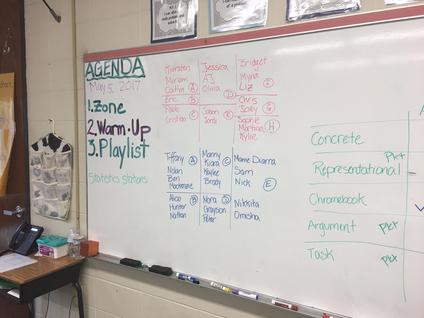 AGENDA
May 5, 2017
1. Zone
2. Warm-Up
3. Playlist
Statistics Stations
Miriam
Caitlin A
Eric B
Cristian C
Jessica
AJ
Olivia D
Jason
Bridget
Myna
Liz
Chris
Sophie H
Martina
Kylie
Tiffany A
Nolan
Ben
Mackenzie
Alice B
Hunter
Nathan
Manny C
Kiara
Kaylee
Brody
Nora D
Grayson
Peter
Mame Diarra
Sam
Nick E
Nikkita
Omisha
Concrete
Representational Pkt
Chromebook
Argument Pkt
Task Pkt